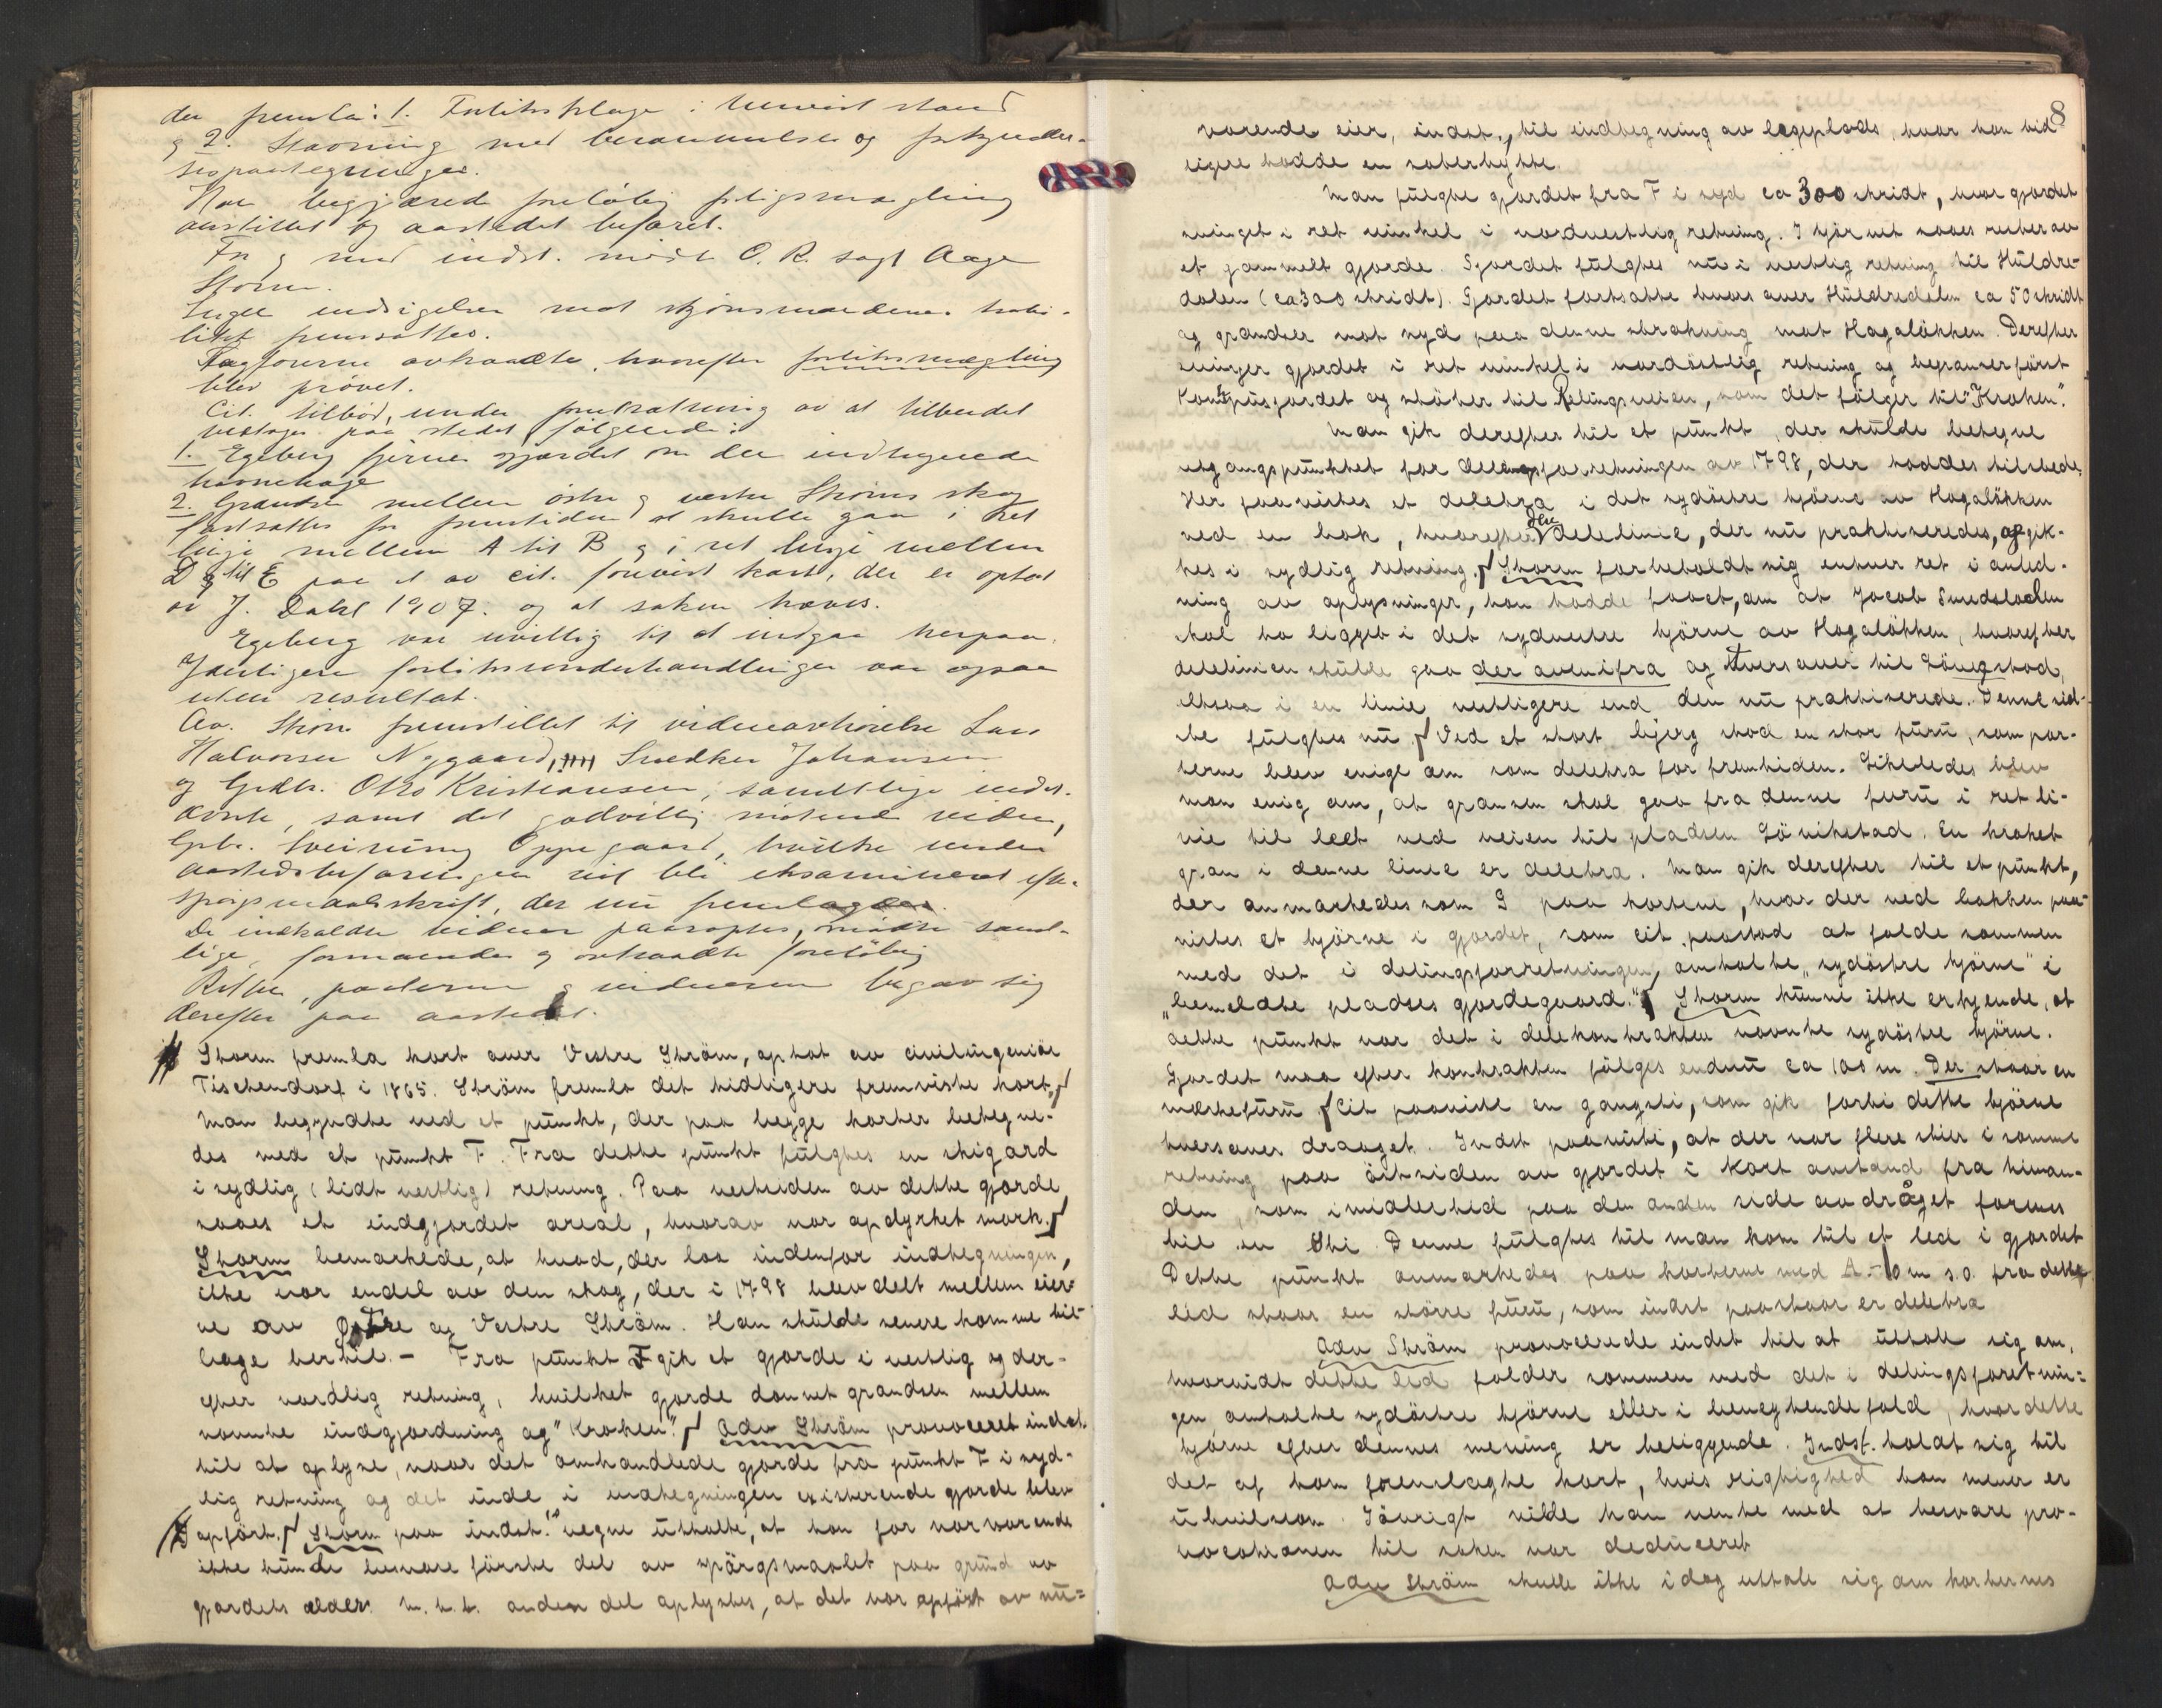 der fremla: 1. Forliksklage i uavvist stand
og 2. Stevning med berammelse og forkyndel-
sespaategninger.
Han begjærede foreløbig forligsmægling
anstillet og aastedet befaret.
For og med indst. mødte O. R. sagf Aage
Storm.
Ingen indsigelser mot skjønsmændenes habi-
litet fremsattes.
Sagførerne avhandlte, hvorefter forliksmægling
blev prøvet.
Cit. tilbød, under forutsætning av at tilbudet
vedtages paa stedet, følgende:
1. Egeberg fjerner gjærdet om den indhegnede
havnehage
2. Grændsen mellem østre og vestre Strøms skog
fastsattes for fremtiden at skulle gaa i ret
linje mellem A til B og i ret linje mellem
D og til E paa et av cit. forevist kart, der er optat
av J. Dahl 1907. og at saken hæves.
Egeberg var uvillig til at indgaa herpaa.
Yderligere forliksunderhandlinger var ogsaa
uten resultat.
Av. Strøm fremstillet til vidneavhørelse Lars
Halvorsen Nygaard, Snedker Johansen
og Grdbr. Otto Kristiansen, samtlige indst.
ævnte, samt det godvillig møtende vidne,
Gbr. Sveinung Oppegaard, hvilke under
aastedsbefaringen vil bli eksamineret efter
spørgsmaalsskrift, der nu fremlægges.
De indkaldte vidner paaroptes, mødte samt-
lige, formanedes og avhandlte foreløbig
Retten, parterne og vidnerne begav sig
derefter paa aastedet.
Storm fremla kart over Vestre Ström, optat av civilingeniör
Tischendorf i 1865. Ström fremla det tidligere fremviste kart.
Man begyndte ved et punkt, der paa begge karter betegne-
des med et punkt F. Fra dette punkt fulgtes en skigard
i sydlig (lidt vestlig) retning. Paa vestsiden av dette gjærde
saaes et indgjærdet areal, hvorav var opdyrket mark.
Storm bemærkede, at hvad, der laa indenfor indhegningen,
ikke var endel av den skog, der i 1798 blev delt mellem eier-
ne av Østre og Vestre Ström. Han skulde senere komme til-
bage hertil. - Fra punkt F gik et gjærde i vestlig og der-
efter nordlig retning, hvilket gjærde dannet grændsen mellem
nævnte indgjærdning og "Kroken". Adv Ström provoceret indst.
til at oplyse, naar det omhandlede gjærde fra punkt F i syd-
lig retning og det inde i indhegningen existerende gjærde blev
opfört. Storm paa indst.'s vegne uttalte, at han for nærværende
ikke kunde besvare förste del av spörgsmaalet paa grund av
gjærdets ælder. M. h. t. anden del oplystes, at det var opfört av nu=
8
værende eier, indst., til indhegning av legeplads, hvor han tid-
ligere hadde en sæterhytte.
Man fulgte gjærdet fra F i syd ca 300 skridt, hvor gjærdet
svinget i ret vinkel i nordvestlig retning. I hjörnet saaes rester av
et gammelt gjærde. Gjærdet fulgtes nu i vestlig retning til Huldre-
dalen (ca 300 skridt). Gjærdet fortsatte tvers over Huldredalen ca 50 skridt
og grændser mot syd paa denne strækning mot Hagalökken. Derefter
svinger gjærdet i ret vinkel i nordöstlig retning og begrænser först
Kontpusjordet og stöter til Relingsveien, som det fölger til "Kroken".
Man gik derefter til et punkt, der skulde betegne
utgangspunktet for delingsforretningen av 1798, der hadde tilstede.
Her paavistes et deletræ i det sydöstre hjörne av Hagalökken
ved en bæk, hvorefter den delelinie, der nu praktiseredes, opgik-
kes i sydlig retning. Storm forbeholdt sig enhver ret i anled-
ning av oplysninger, han hadde faaet, om at Jacob Smedsløkken
skal ha ligget i det sydvestre hjörne av Hagalökken, hvorefter
delelinien skulde gaa der ovenifra og tversover til Lönegstad,
altsaa i en linie vestligere end den nu praktiserede. Denne sid-
ste fulgtes nu. Ved et stort bjerg stod en stor furu, som par-
terne blev enige om som deletræ for fremtiden. Likeledes blev
man enig om, at grænsen skal gaa fra denne furu i ret li-
nie til leet ved veien til pladsen Lönikstad. En kroket
gran i denne linie er deletræ. Man gik derefter til et punkt,
der anmærkedes som G paa kartene, hvor der ved bækken paa-
vistes et hjörne i gjærdet, som cit. paastod at falde sammen
med det i delingsforretningen omtalte "sydöstre hjörne" i
"bemeldte pladses gjærdegaard." Storm kunne ikke erkjende, at
dette punkt var det i delekontrakten nævnte sydöstre hjörne.
Gjærdet maa efter kontrakten fölges endnu ca 100 m. Der staar en
merkefuru. Cit paaviste en gangsti, som gik forbi dette hjörne
tversover draaget. Indst paaviste, at der var flere stier i samme
retning paa östsiden av gjærdet i kort avstand fra hinan-
den, som imidlertid paa den anden side av dråget forenes
til en Sti. Denne fulgtes til man kom til et led i gjærdet
Dette punkt anmærkedes paa karterne med A. - 10 m s.o. fra dette
led staar en större furu, som indst paastaar er deletræ
Adv Ström provocerede indst til at uttale sig om,
hvorvidt dette led falder sammen med det i delingsforetnin-
gen omtalte sydöstre hjörne eller i benegtende fald, hvor dette
hjörne efter dennes mening er beliggende. Indst. holdt sig til
det af ham fremlagte kart, hvis rigtighed han mener er
utvilsom. Iövrigt vilde han vente med at besvare pro-
vocationen til saken var deduceret
Adv Ström skulle ikke idag uttale sig om karternes